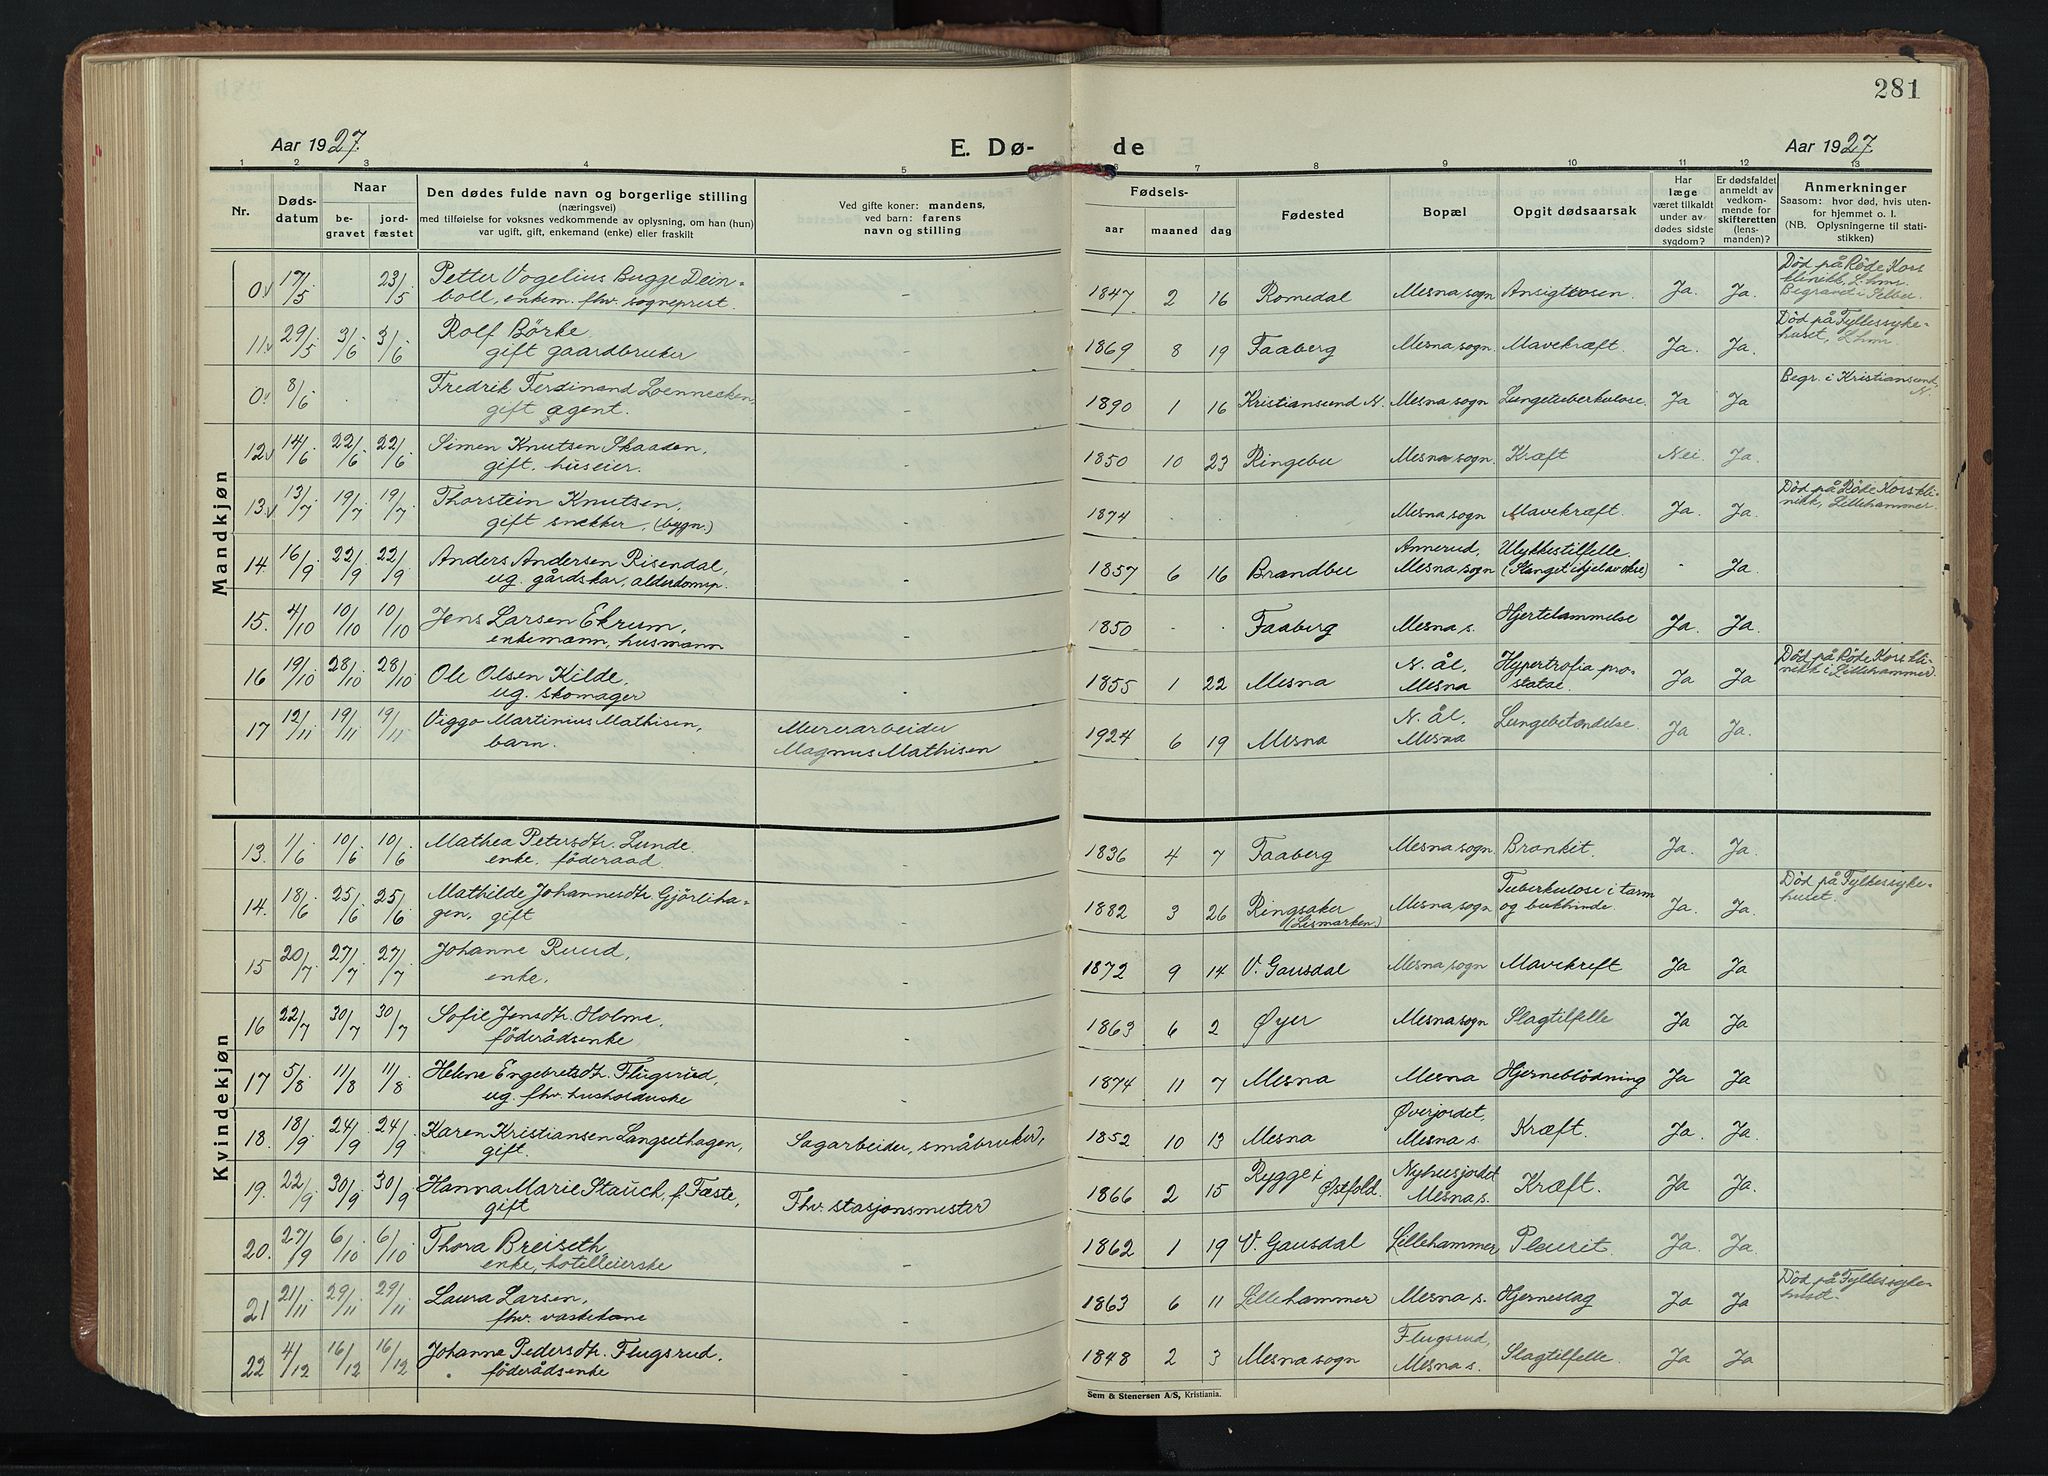 281
Aar 1927. E. Dø- de Aar 1927.
1 2 3 4 5 6 7 8 9 10 11 12 13
Nr. Dødsdatum Naar begravet jordfæstet
Den dødes fulde navn og borgerlige stilling
(næringsvei)
med tilføielse for voksnes vedkommende av oplysning, om han (hun)
var ugift, gift, enkemand (enke) eller fraskilt
Ved gifte koner: mandens,
ved barn: farens
navn og stilling
Fødsels-
aar maaned dag
Fødested Bopæl Opgit dødsaarsak
Har læge været tilkaldt under av dødes sidste sygdom?
Er dødsfaldet anmeldt av vedkommende for skifteretten (lensmanden)?
Anmerkninger
Saasom: hvor død, hvis utenfor hjemmet o. l.
(NB. Oplysningerne til statistikken)
Mandkjøn
0. 17/5 23/5 Petter Vogelius Bugge Dein=
boll, enkem. fhv. sogneprest. - 1847 2 16 Romedal Mesna sogn Ansigtrosen. Ja. Ja. Død på Røde Kors
klinikk, L.hmr.
Begravet i Selbu.
11. 29/5 3/6 3/6 Rolf Börke
gift gaardbruker - 1869 8 19 Faaberg Mesna sogn. Mavekræft. Ja. Ja. Død på Fylkessyke-
huset, L.hmr.
0. 8/6 Fredrik Ferdinand Loennecken,
gift agent. - 1890 1 16 Kristiansund N. Mesna sogn Lungetuberkulose. Ja Ja Begr. i Kristiansund,
N.
12. 14/6 22/6 22/6 Simen Knutsen Skaaden,
gift, huseier. - 1850 10 23 Ringebu Mesna sogn. Kræft Nei. Ja.
13. 13/7 19/7 19/7 Thorstein Knutsen,
gift snekker, (bygn.) - 1874 Mesna sogn Mavekræft. Ja. Ja. Død på Røde Kors kli-
nikk, Lillehammer.
14. 16/9 22/9 22/9 Anders Andersen Risendal,
ug. gårdskar, alderdomsp. - 1857 6 16 Brandbu Annerud,
Mesna sogn Ulykkestilfelle.
(Stanget ihjel av okse) - Ja.
15. 4/10 10/10 10/10 Jens Larsen Ekrum,
enkemann, husmann - 1850 - - Faaberg Mesna s. Hjertelammelse Ja. Ja.
16 19/10 28/10 28/10 Ole Olsen Kilde,
ug. skomager - 1855 1 22 Mesna N. ål,
Mesna Hypertrofia pro-
statae. Ja Ja Død på Røde Kors kli-
nikk i Lillehammer.
17 12/11 19/11 19/11 Viggo Martinius Mathisen,
barn. Murerarbeider
Magnus Mathisen 1924 6 19 Mesna N. ål.
Mesna Lungebetændelse. Ja Ja.
Kvindekjøn
13. 1/6 10/6 10/6 Mathea Petersdtr. Lunde.
enke, föderaad - 1836 4 7 Faaberg Mesna sogn. Bronkit. Ja. Ja.
14. 18/6 25/6 25/6 Mathilde Johannesdtr. Gjörliha-
gen, gift - 1882 3 26 Ringsaker
(Lismarken) Mesna sogn Tuberkulose i tarm
og bukhinde. Ja. Ja. Død på Fylkessyke-
huset.
15 20/7 27/7 27/7 Johanne Ruud,
enke. - 1872 9 14 V. Gausdal Mesna sogn Mavekreft Ja Ja
16 22/7 30/7 30/7 Sofie Jensdtr. Holme,
föderådsenke - 1863 6 2 Øyer Mesna sogn Slagtilfelle Ja Ja
17 5/8 11/8 11/8 Helene Engebretsdtr. Flugsrud,
ug. fhv. husholderske - 1874 11 7 Mesna Mesna Hjerneblödning Ja Ja
18. 18/9 24/9 24/9 Karen Kristiansen Langsethagen,
gift. Sagarbeider, småbruker, 1852 10 13 Mesna Øverjordet,
Mesna s. Kræft. Ja. Ja.
19. 22/9 30/9 30/9 Hanna Marie Stauch, f. Fæste,
gift Fhv. stasjonsmester 1866 2 15 Rygge i
Østfold. Nyhusjordet
Mesna s. Kræft. Ja Ja.
20. 27/9 6/10 6/10 Thora Breiseth
enke, hotelleierske - 1862 1 19 V. Gausdal Lillehammer Pleurit. Ja. Ja.
21 21/11 29/11 29/11 Laura Larsen,
fhv. vaskekone - 1863 6 11 Lillehammer Mesna s. Hjerneslag Ja Ja Død på Fylkessyke-
huset.
22 4/12 16/12 16/12 Johanne Pedersdtr. Flugsrud.
föderådsenke - 1848 2 3 Mesna sogn Flugsrud,
Mesna s. Slagtilfelle. Ja Ja
Sem & Stenersen A/S, Kristiania.